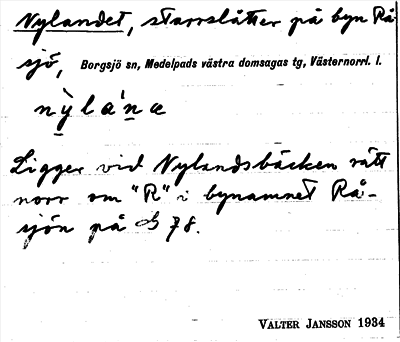 Nylandet, starrslåtter på byn Rå
sjö, Borgsjö sn, Medelpads västra domsagas tg, Västernorrl. l.
nỳla'na
Ligger vid Nylandsbäcken rätt
norr om "R" i bynamnet Rå-
sjön på 78.
VALTER JANSSON 1934